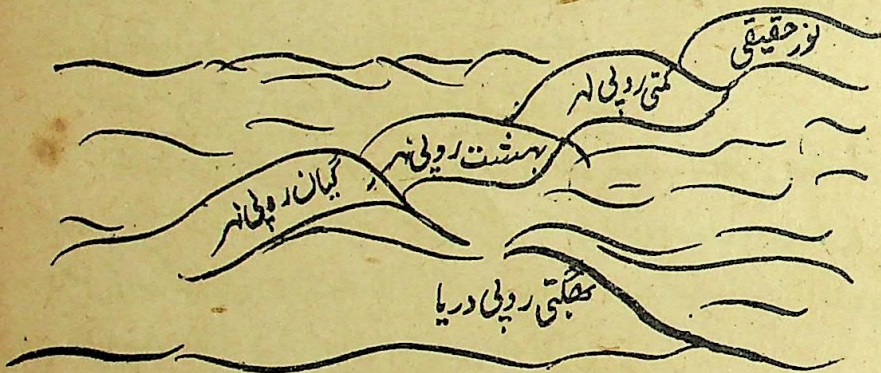 نور حقیقی
مکتی روپی لہر
بہشت روپی نہر
گیان روپی نہر
بھگتی روپی دریا